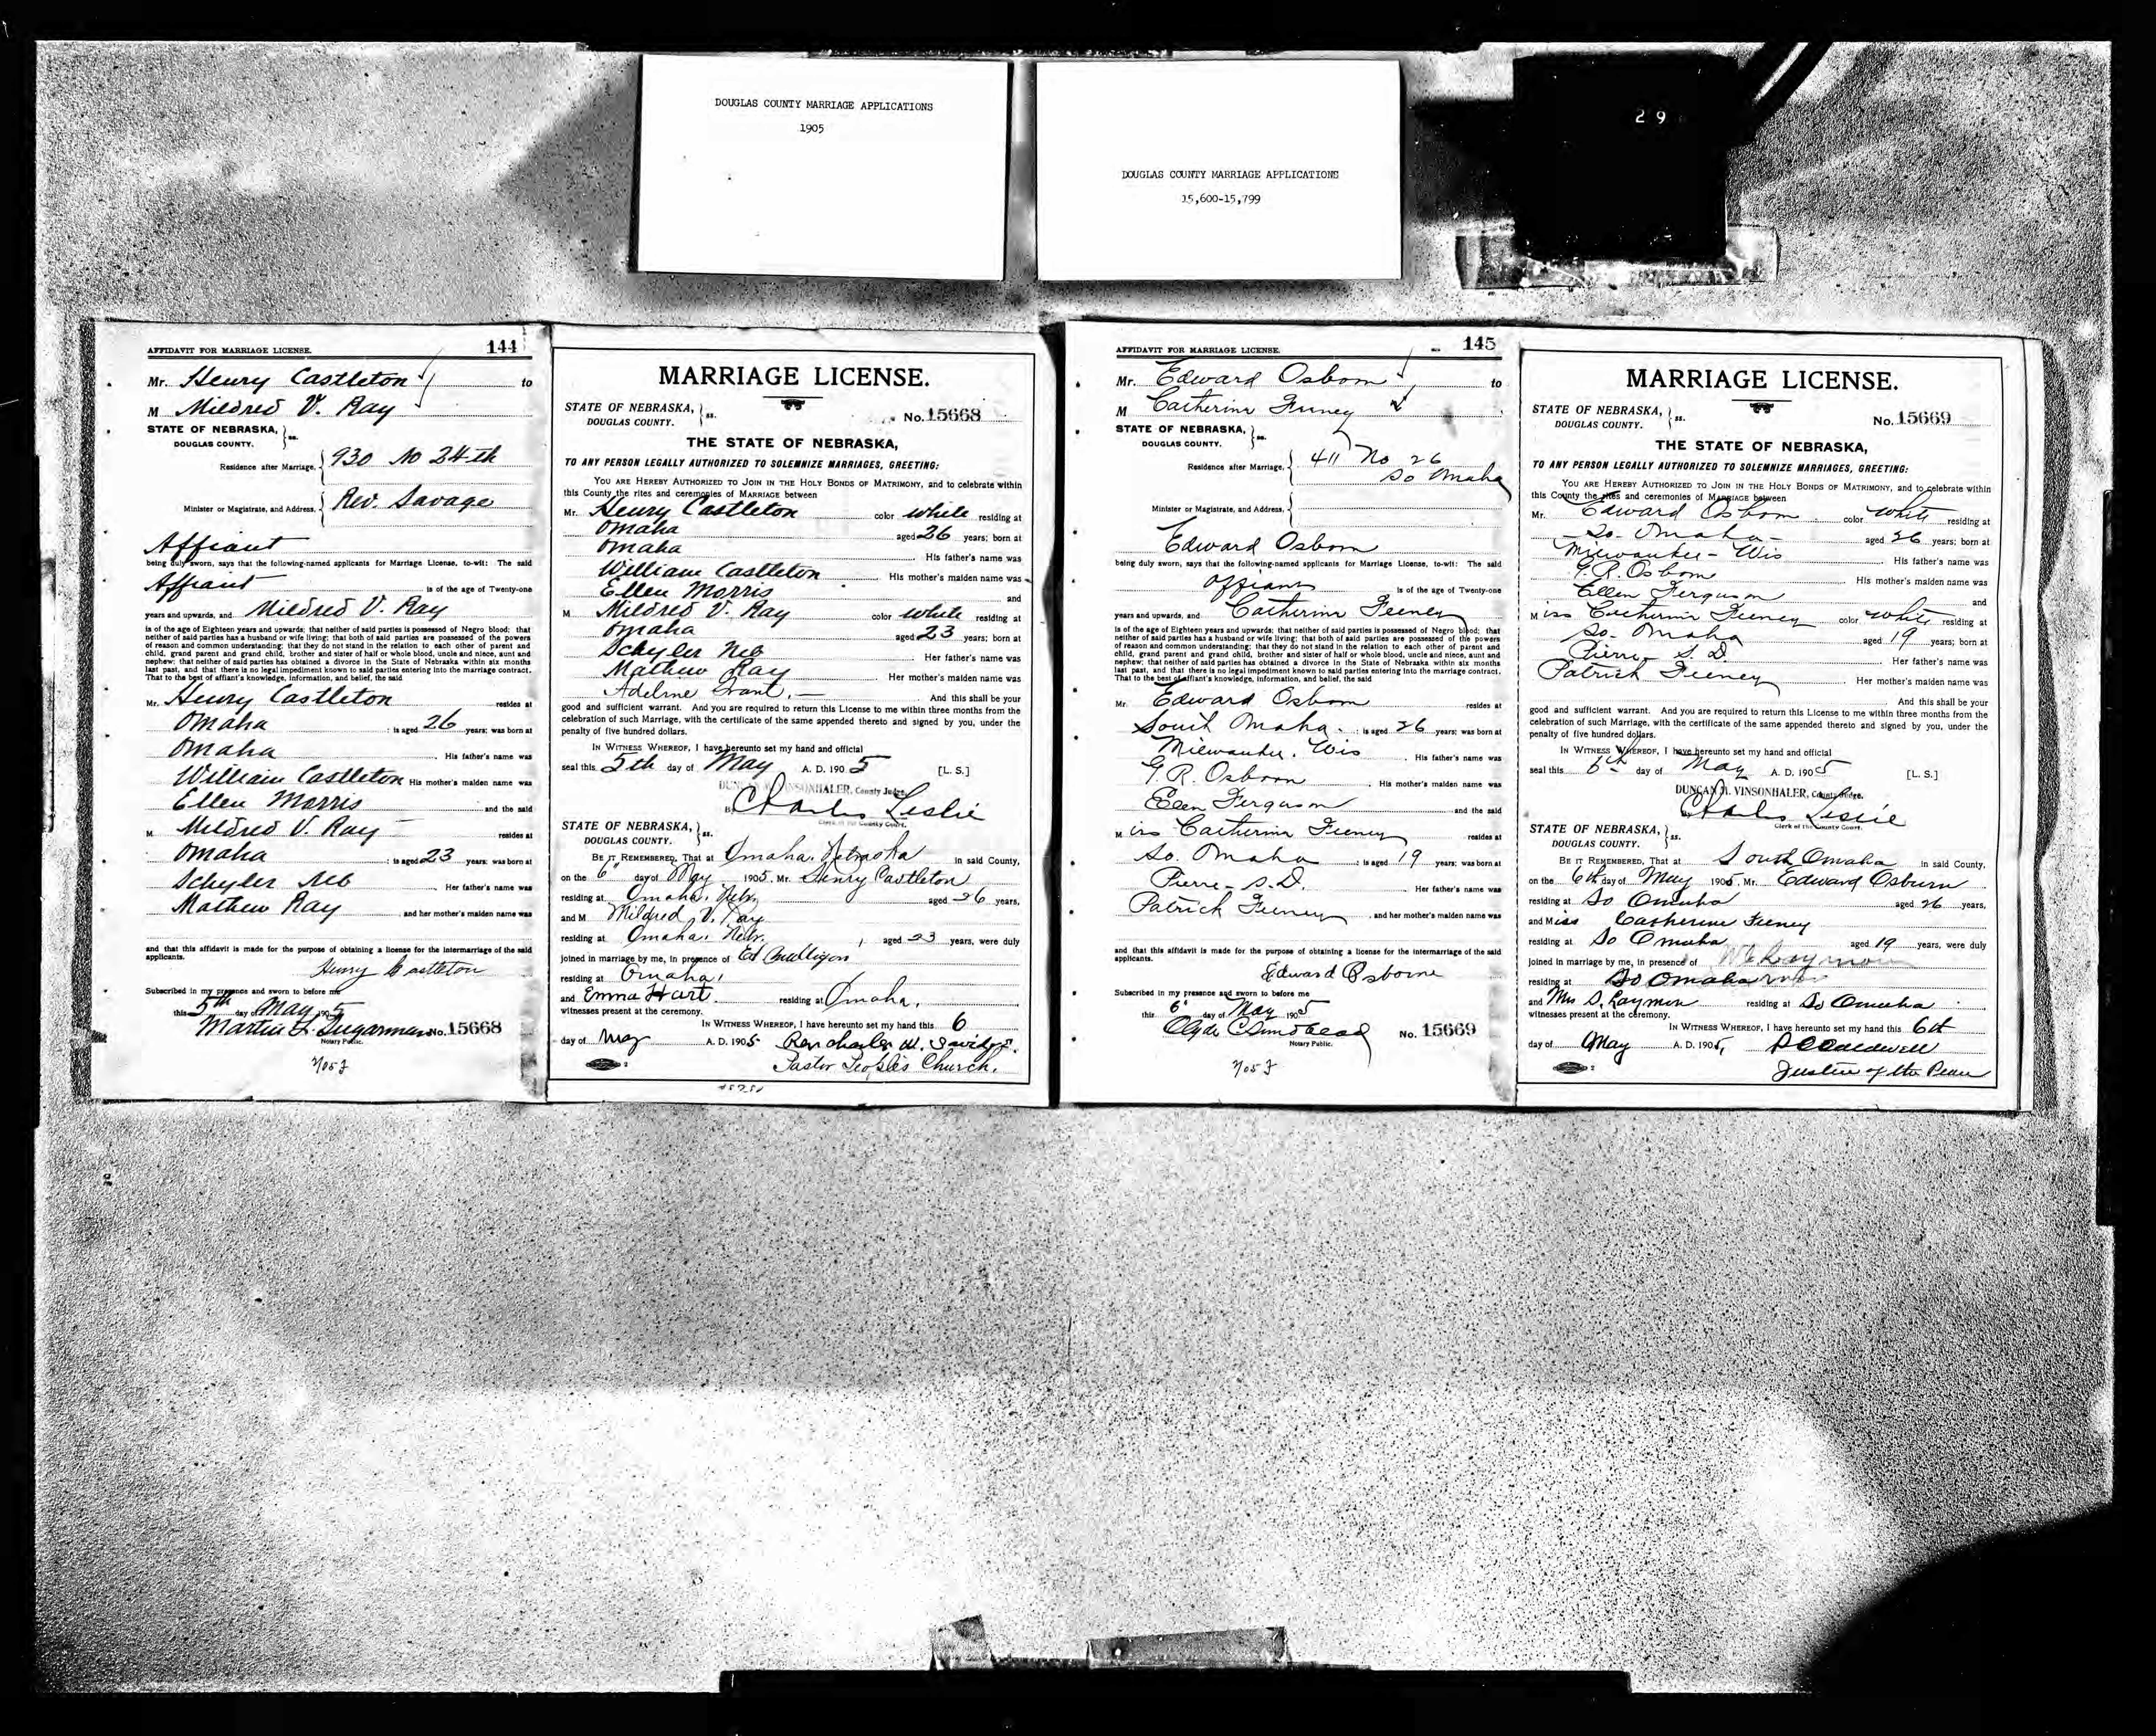 DOUGLAS COUNTY MARRIAGE APPLICATIONS
1905
DOUGLAS COUNTY MARRIAGE APPLICATIONS
15,600-15,799
2 9
AFFIDAVIT FOR MARRIAGE LICENSE. 144
Mr. Henry Castleton to
M Mildred V. Ray
STATE OF NEBRASKA, } ss.
DOUGLAS COUNTY.
Residence after Marriage, { 930 No 24th
Minister or Magistrate, and Address, { Rev. Savage
Affiant
being duly sworn, says that the following-named applicants for Marriage License, to-wit: The said
Affiant is of the age of Twenty-one
years and upwards, and Mildred V. Ray
is of the age of Eighteen years and upwards; that neither of said parties is possessed of Negro blood; that
neither of said parties has a husband or wife living; that both of said parties are possessed of the powers
of reason and common understanding; that they do not stand in the relation to each other of parent and
child, grand parent and grand child, brother and sister of half or whole blood, uncle and niece, aunt and
nephew; that neither of said parties has obtained a divorce in the State of Nebraska within six months
last past, and that there is no legal impediment known to said parties entering into the marriage contract.
That to the best of affiant's knowledge, information, and belief, the said
Mr. Henry Castleton resides at
Omaha ; is aged 26 years; was born at
Omaha . His father's name was
William Castleton His mother's maiden name was
Ellen Morris and the said
M Mildred V. Ray resides at
Omaha ; is aged 23 years; was born at
Schyler Neb . Her father's name was
Mathew Ray and her mother's maiden name was
and that this affidavit is made for the purpose of obtaining a license for the intermarriage of the said
applicants.
Henry Castleton
Subscribed in my presence and sworn to before me
this 5th day May 1905
Martin L. Sugarman No. 15668
Notary Public.
MARRIAGE LICENSE.
STATE OF NEBRASKA, } ss.
DOUGLAS COUNTY.
No. 15668
THE STATE OF NEBRASKA,
TO ANY PERSON LEGALLY AUTHORIZED TO SOLEMNIZE MARRIAGES, GREETING:
YOU ARE HEREBY AUTHORIZED TO JOIN IN THE HOLY BONDS OF MATRIMONY, and to celebrate within
this County the rites and ceremonies of MARRIAGE between
Mr. Henry Castleton color white residing at
Omaha aged 26 years; born at
Omaha . His father's name was
William Castleton . His mother's maiden name was
Ellen Morris and
M Mildred V. Ray color white residing at
Omaha aged 23 years; born at
Schyler Neb . Her father's name was
Mathew Ray . Her mother's maiden name was
Adeline Grant. And this shall be your
good and sufficient warrant. And you are required to return this License to me within three months from the
celebration of such Marriage, with the certificate of the same appended thereto and signed by you, under the
penalty of five hundred dollars.
IN WITNESS WHEREOF, I have hereunto set my hand and official
seal this 5th day of May A. D. 1905 [L. S.]
VINSONHALER, County Judge.
Charles Leslie
Clerk of the County Court.
STATE OF NEBRASKA, } ss.
DOUGLAS COUNTY.
BE IT REMEMBERED, That at Omaha, Nebraska in said County,
on the 6" day of May 1905, Mr. Henry Castleton
residing at Omaha, Nebr. aged 26 years,
and M Mildred V. Ray
residing at Omaha, Nebr. , aged 23 years, were duly
joined in marriage by me, in presence of Ed
residing at Omaha,
and Emma Hart. residing at Omaha,
witnesses present at the ceremony.
IN WITNESS WHEREOF, I have hereunto set my hand this 6
day of May A. D. 1905 Rev Charles W. Savidge.
Pastor People's Church.
AFFIDAVIT FOR MARRIAGE LICENSE. 145
Mr. Edward Osborn to
M Catherine Feeney
STATE OF NEBRASKA, } ss.
DOUGLAS COUNTY.
Residence after Marriage, { 411 No 26
So Omaha
Minister or Magistrate, and Address, {
Edward Osborn
being duly sworn, says that the following-named applicants for Marriage License, to-wit: The said
affiant is of the age of Twenty-one
years and upwards, and Catherine Feeney
is of the age of Eighteen years and upwards; that neither of said parties is possessed of Negro blood; that
neither of said parties has a husband or wife living; that both of said parties are possessed of the powers
of reason and common understanding; that they do not stand in the relation to each other of parent and
child, grand parent and grand child, brother and sister of half or whole blood, uncle and niece, aunt and
nephew; that neither of said parties has obtained a divorce in the State of Nebraska within six months
last past, and that there is no legal impediment known to said parties entering into the marriage contract.
That to the best of affiant's knowledge, information, and belief, the said
Mr. Edward Osborn resides at
South Omaha ; is aged 26 years; was born at
Milwaukee. Wis . His father's name was
G. R. Osborn . His mother's maiden name was
Ellen Ferguson and the said
Miss Catherine Feeney resides at
So. Omaha ; is aged 19 years; was born at
Pierre - S. D. . Her father's name was
Patrick Feeney , and her mother's maiden name was
and that this affidavit is made for the purpose of obtaining a license for the intermarriage of the said
applicants.
Edward Osborne
Subscribed in my presence and sworn to before me
this 6" day of May 1905
Clyde C. Sundblad No. 15669
Notary Public.
MARRIAGE LICENSE.
STATE OF NEBRASKA, } ss.
DOUGLAS COUNTY.
No. 15669
THE STATE OF NEBRASKA,
TO ANY PERSON LEGALLY AUTHORIZED TO SOLEMNIZE MARRIAGES, GREETING:
YOU ARE HEREBY AUTHORIZED TO JOIN IN THE HOLY BONDS OF MATRIMONY, and to celebrate within
this County the rites and ceremonies of MARRIAGE between
Mr. Edward Osborn color white residing at
So. Omaha aged 26 years; born at
Milwaukee - Wis . His father's name was
G. R. Osborn His mother's maiden name was
Ellen Ferguson and
Miss Catherine Feeney color white residing at
So. Omaha aged 19 years; born at
Pierre S. D. . Her father's name was
Patrick Feeney . Her mother's maiden name was
And this shall be your
good and sufficient warrant. And you are required to return this License to me within three months from the
celebration of such Marriage, with the certificate of the same appended thereto and signed by you, under the
penalty of five hundred dollars.
IN WITNESS WHEREOF, I have hereunto set my hand and official
seal this 6th day of May A. D. 1905 [L. S.]
DUNCAN M. VINSONHALER, County Judge.
Charles Leslie
Clerk of the County Court.
STATE OF NEBRASKA, } ss.
DOUGLAS COUNTY.
BE IT REMEMBERED, That at South Omaha in said County,
on the 6th day of May 1905, Mr. Edward Osburn
residing at So Omaha aged 26 years,
and Miss Catherine Feeney
residing at So Omaha aged 19 years, were duly
joined in marriage by me, in presence of
residing at So Omaha
and Mrs S. Laymon residing at So Omaha
witnesses present at the ceremony.
IN WITNESS WHEREOF, I have hereunto set my hand this 6th
day of May A. D. 1905, Caldwell
Justice of the Peace